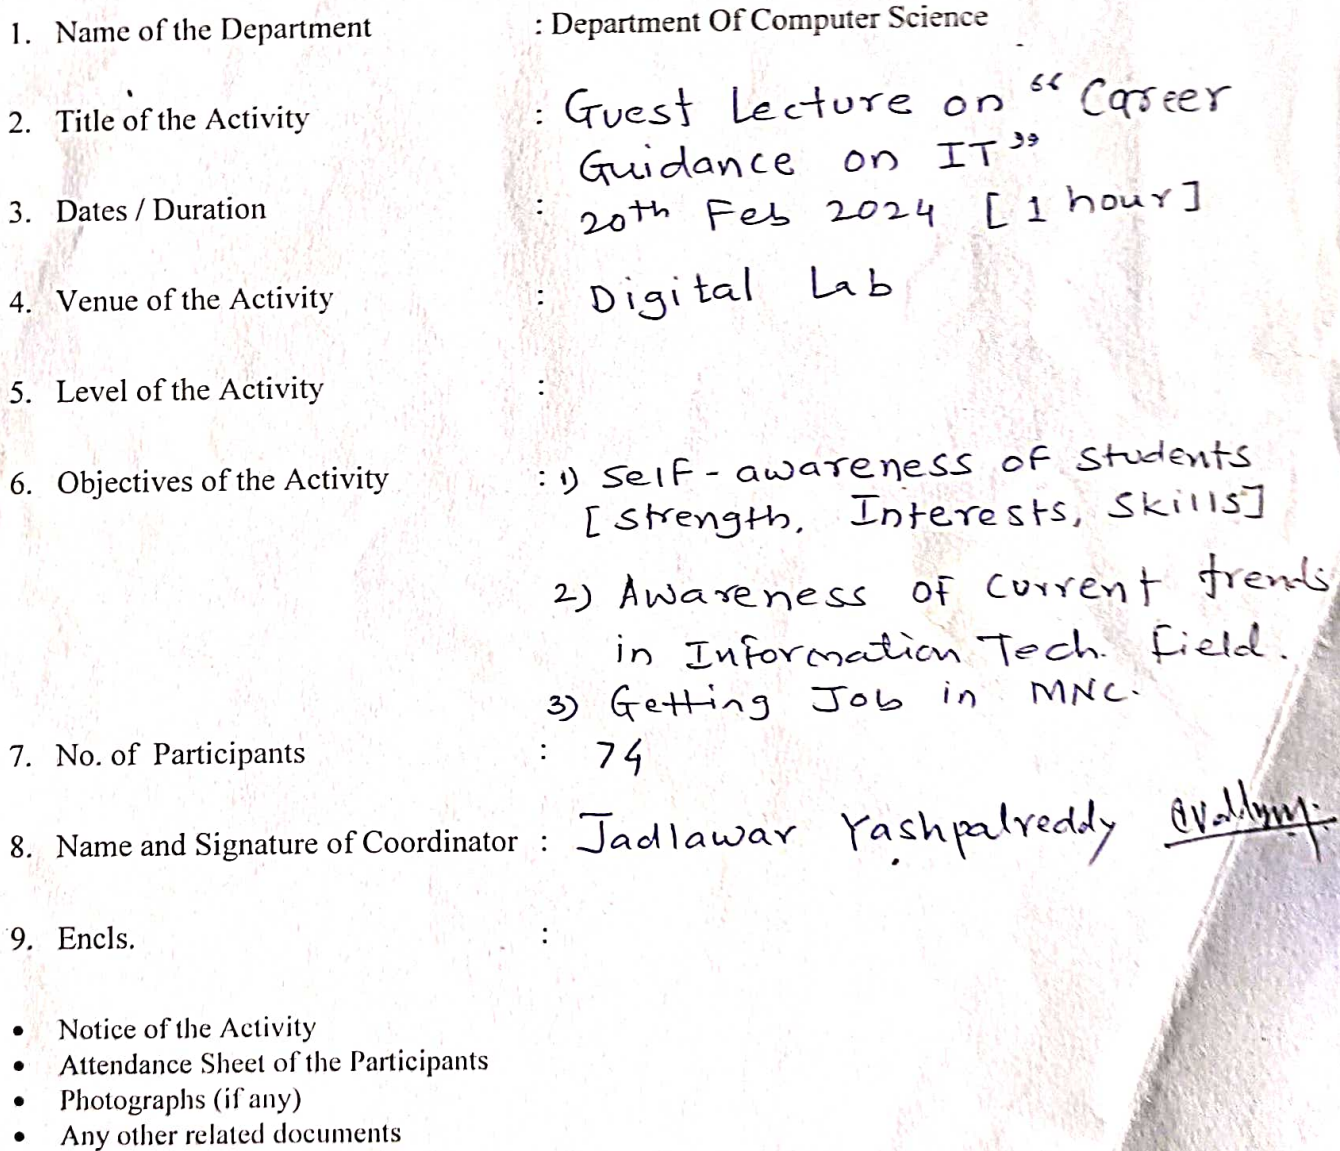 1. Name of the Department : Department Of Computer Science
2. Title of the Activity : Guest Lecture on “ Career
Guidance on IT ”
3. Dates / Duration : 20th Feb 2024 [ 1 hour ]
4. Venue of the Activity : Digital Lab
5. Level of the Activity :
6. Objectives of the Activity : 1) Self - awareness of students
[ strength, Interests, Skills]
2) Awareness of current trends
in Information Tech. field.
3) Getting Job in MNC.
7. No. of Participants : 74
8. Name and Signature of Coordinator : Jadlawar Yashpalreddy
9. Encls. :
• Notice of the Activity
• Attendance Sheet of the Participants
• Photographs (if any)
• Any other related documents